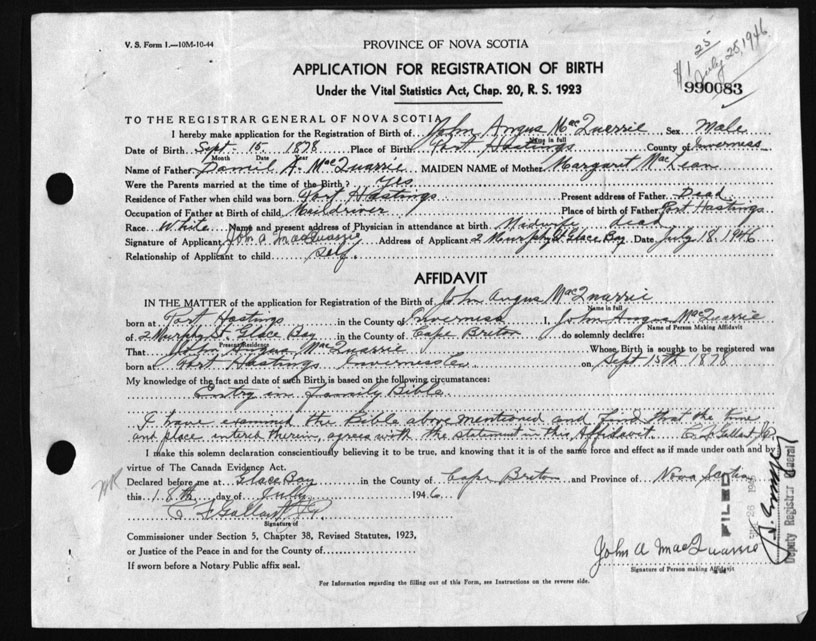 V. S. Form 1.—10M-10-44
PROVINCE OF NOVA SCOTIA
$1 25
July 25, 1946
APPLICATION FOR REGISTRATION OF BIRTH
990083
Under the Vital Statistics Act, Chap. 20, R. S. 1923
TO THE REGISTRAR GENERAL OF NOVA SCOTIA
I hereby make application for the Registration of Birth of John Angus MacQuarrie Sex Male
Date of Birth Sept. 15 1878 Place of Birth Port Hastings County of Inverness
Month Date Year Name in full
Name of Father Daniel A. MacQuarrie MAIDEN NAME of Mother Margaret MacLean
Were the Parents married at the time of the Birth? Yes
Residence of Father when child was born Port Hastings Present address of Father Dead
Occupation of Father at Birth of child Place of birth of Father Port Hastings
Race White Name and present address of Physician in attendance at birth Midwife dead
Signature of Applicant John A MacQuarrie Address of Applicant 2 Murphy St Glace Bay Date July 18, 1946
Relationship of Applicant to child Self.
AFFIDAVIT
IN THE MATTER of the application for Registration of the Birth of John Angus MacQuarrie
Name in full
born at Port Hastings in the County of Inverness I, John Angus MacQuarrie
Name of Person Making Affidavit
of 2 Murphy St Glace Bay in the County of Cape Breton do solemnly declare:
Present Residence
That John Angus MacQuarrie Whose Birth is sought to be registered was
born at Port Hastings Inverness Co. on Sept 15th 1878
My knowledge of the fact and date of such Birth is based on the following circumstances:
Entry in Family Bible
I have examined the Bible above mentioned and find that the time
and place entered therein, agrees with the statement in this Affidavit. C. F. Gallant J.P.
I make this solemn declaration conscientiously believing it to be true, and knowing that it is of the same force and effect as if made under oath and by
virtue of The Canada Evidence Act.
Declared before me at Glace Bay in the County of Cape Breton and Province of Nova Scotia
this 18th day of July 1946
C F Gallant J.P.
Signature of
Commissioner under Section 5, Chapter 38, Revised Statutes, 1923,
or Justice of the Peace in and for the County of
If sworn before a Notary Public affix seal.
FILED
Deputy Registrar General
John A MacQuarrie
Signature of Person making Affidavit
For Information regarding the filling out of this Form, see Instructions on the reverse side.